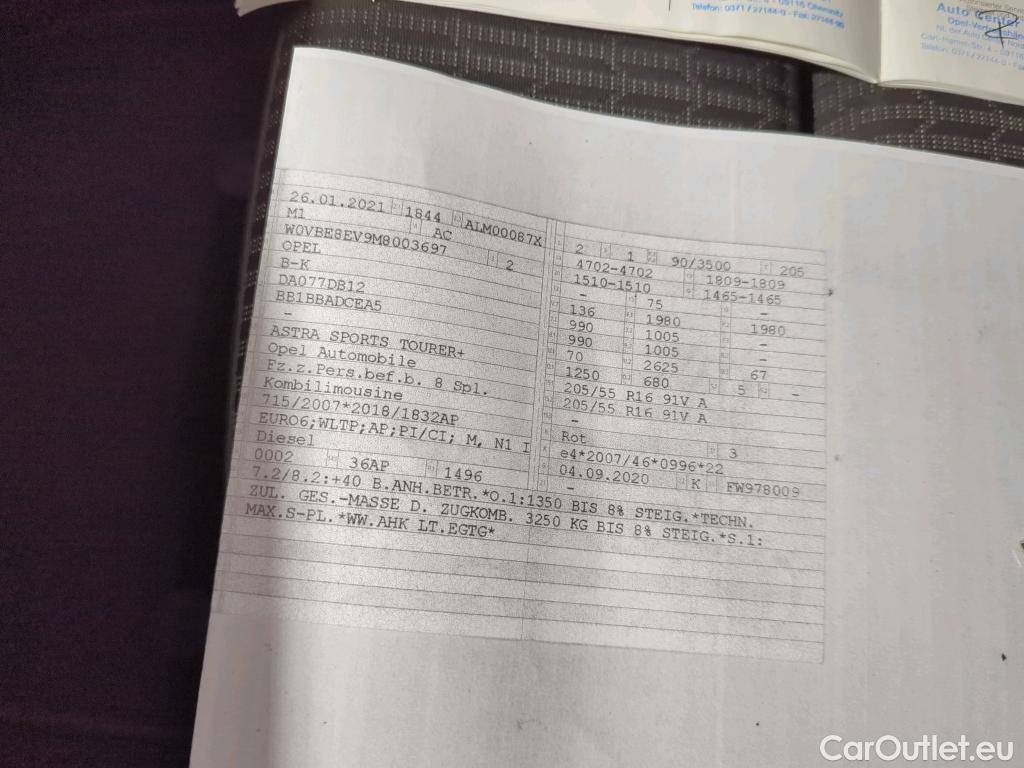 09116 Chemnitz
Telefon: 0371 / 27144-0 - Fax: 27144-98
Auto
Opel-
Nl. der Auto
Carl-Hamel-Str. 4 - 09116
Telefon: 0371 / 27144-0 -
26.01.2021 1844 ALM00087X
M1 AC
W0VBE8EV9M8003697 2
OPEL
B-K
DA077DB12
BB1BBADCEA5
-
ASTRA SPORTS TOURER+
Opel Automobile
Fz.z.Pers.bef.b. 8 Spl.
Kombilimousine
715/2007*2018/1832AP
EURO6;WLTP;AP;PI/CI; M, N1 I
Diesel
0002 36AP 1496
2 1 90/3500 205
4702-4702 1809-1809
1510-1510 1465-1465
- 75 -
136 1980 1980
990 1005 -
990 1005 -
70 2625 67
1250 680 5 -
205/55 R16 91V A
205/55 R16 91V A
-
Rot 3
e4*2007/46*0996*22
04.09.2020 K FW978009
-
7.2/8.2:+40 B.ANH.BETR.*O.1:1350 BIS 8% STEIG.*TECHN.
ZUL. GES.-MASSE D. ZUGKOMB. 3250 KG BIS 8% STEIG.*S.1:
MAX.S-PL.*WW.AHK LT.EGTG*
CarOutlet.eu